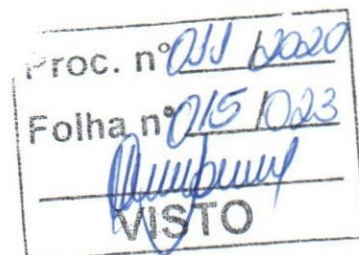 Proc. nº 011/2020
Folha nº 015/023
VISTO